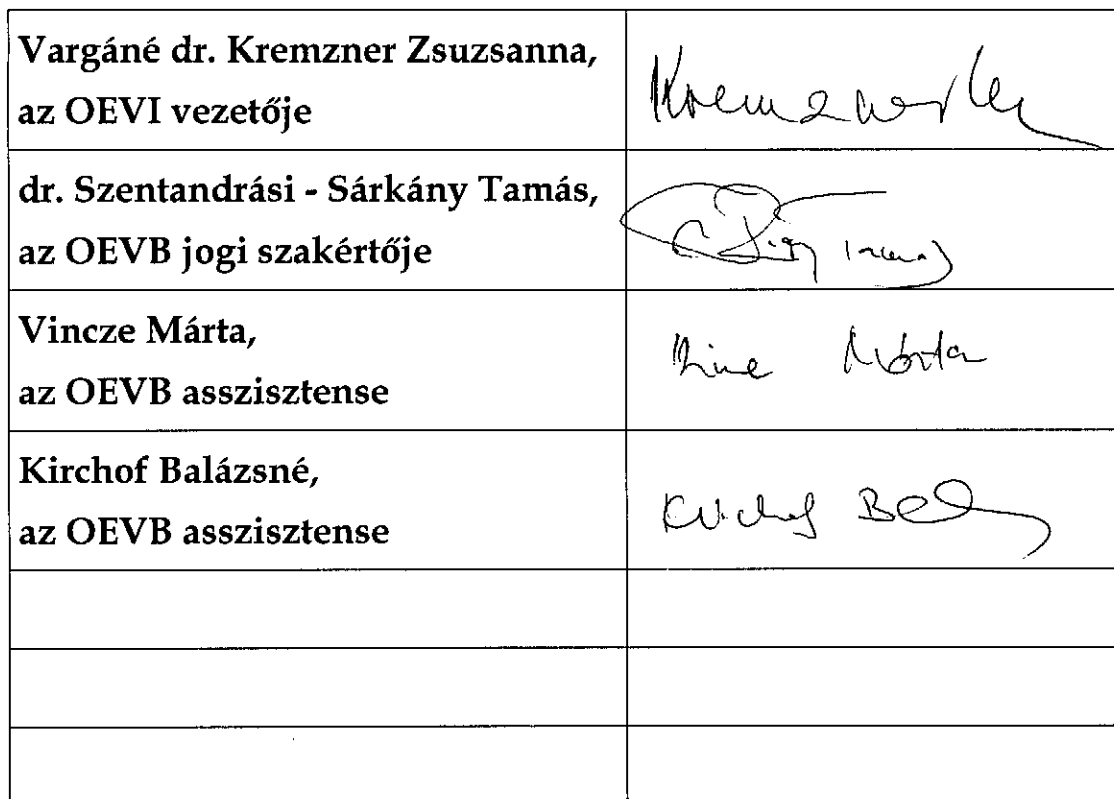 Vargáné dr. Kremzner Zsuzsanna,
az OEVI vezetője
dr. Szentandrási - Sárkány Tamás,
az OEVB jogi szakértője
Vincze Márta,
az OEVB asszisztense
Márta
Kirchof Balázsné,
az OEVB asszisztense
Kirchof